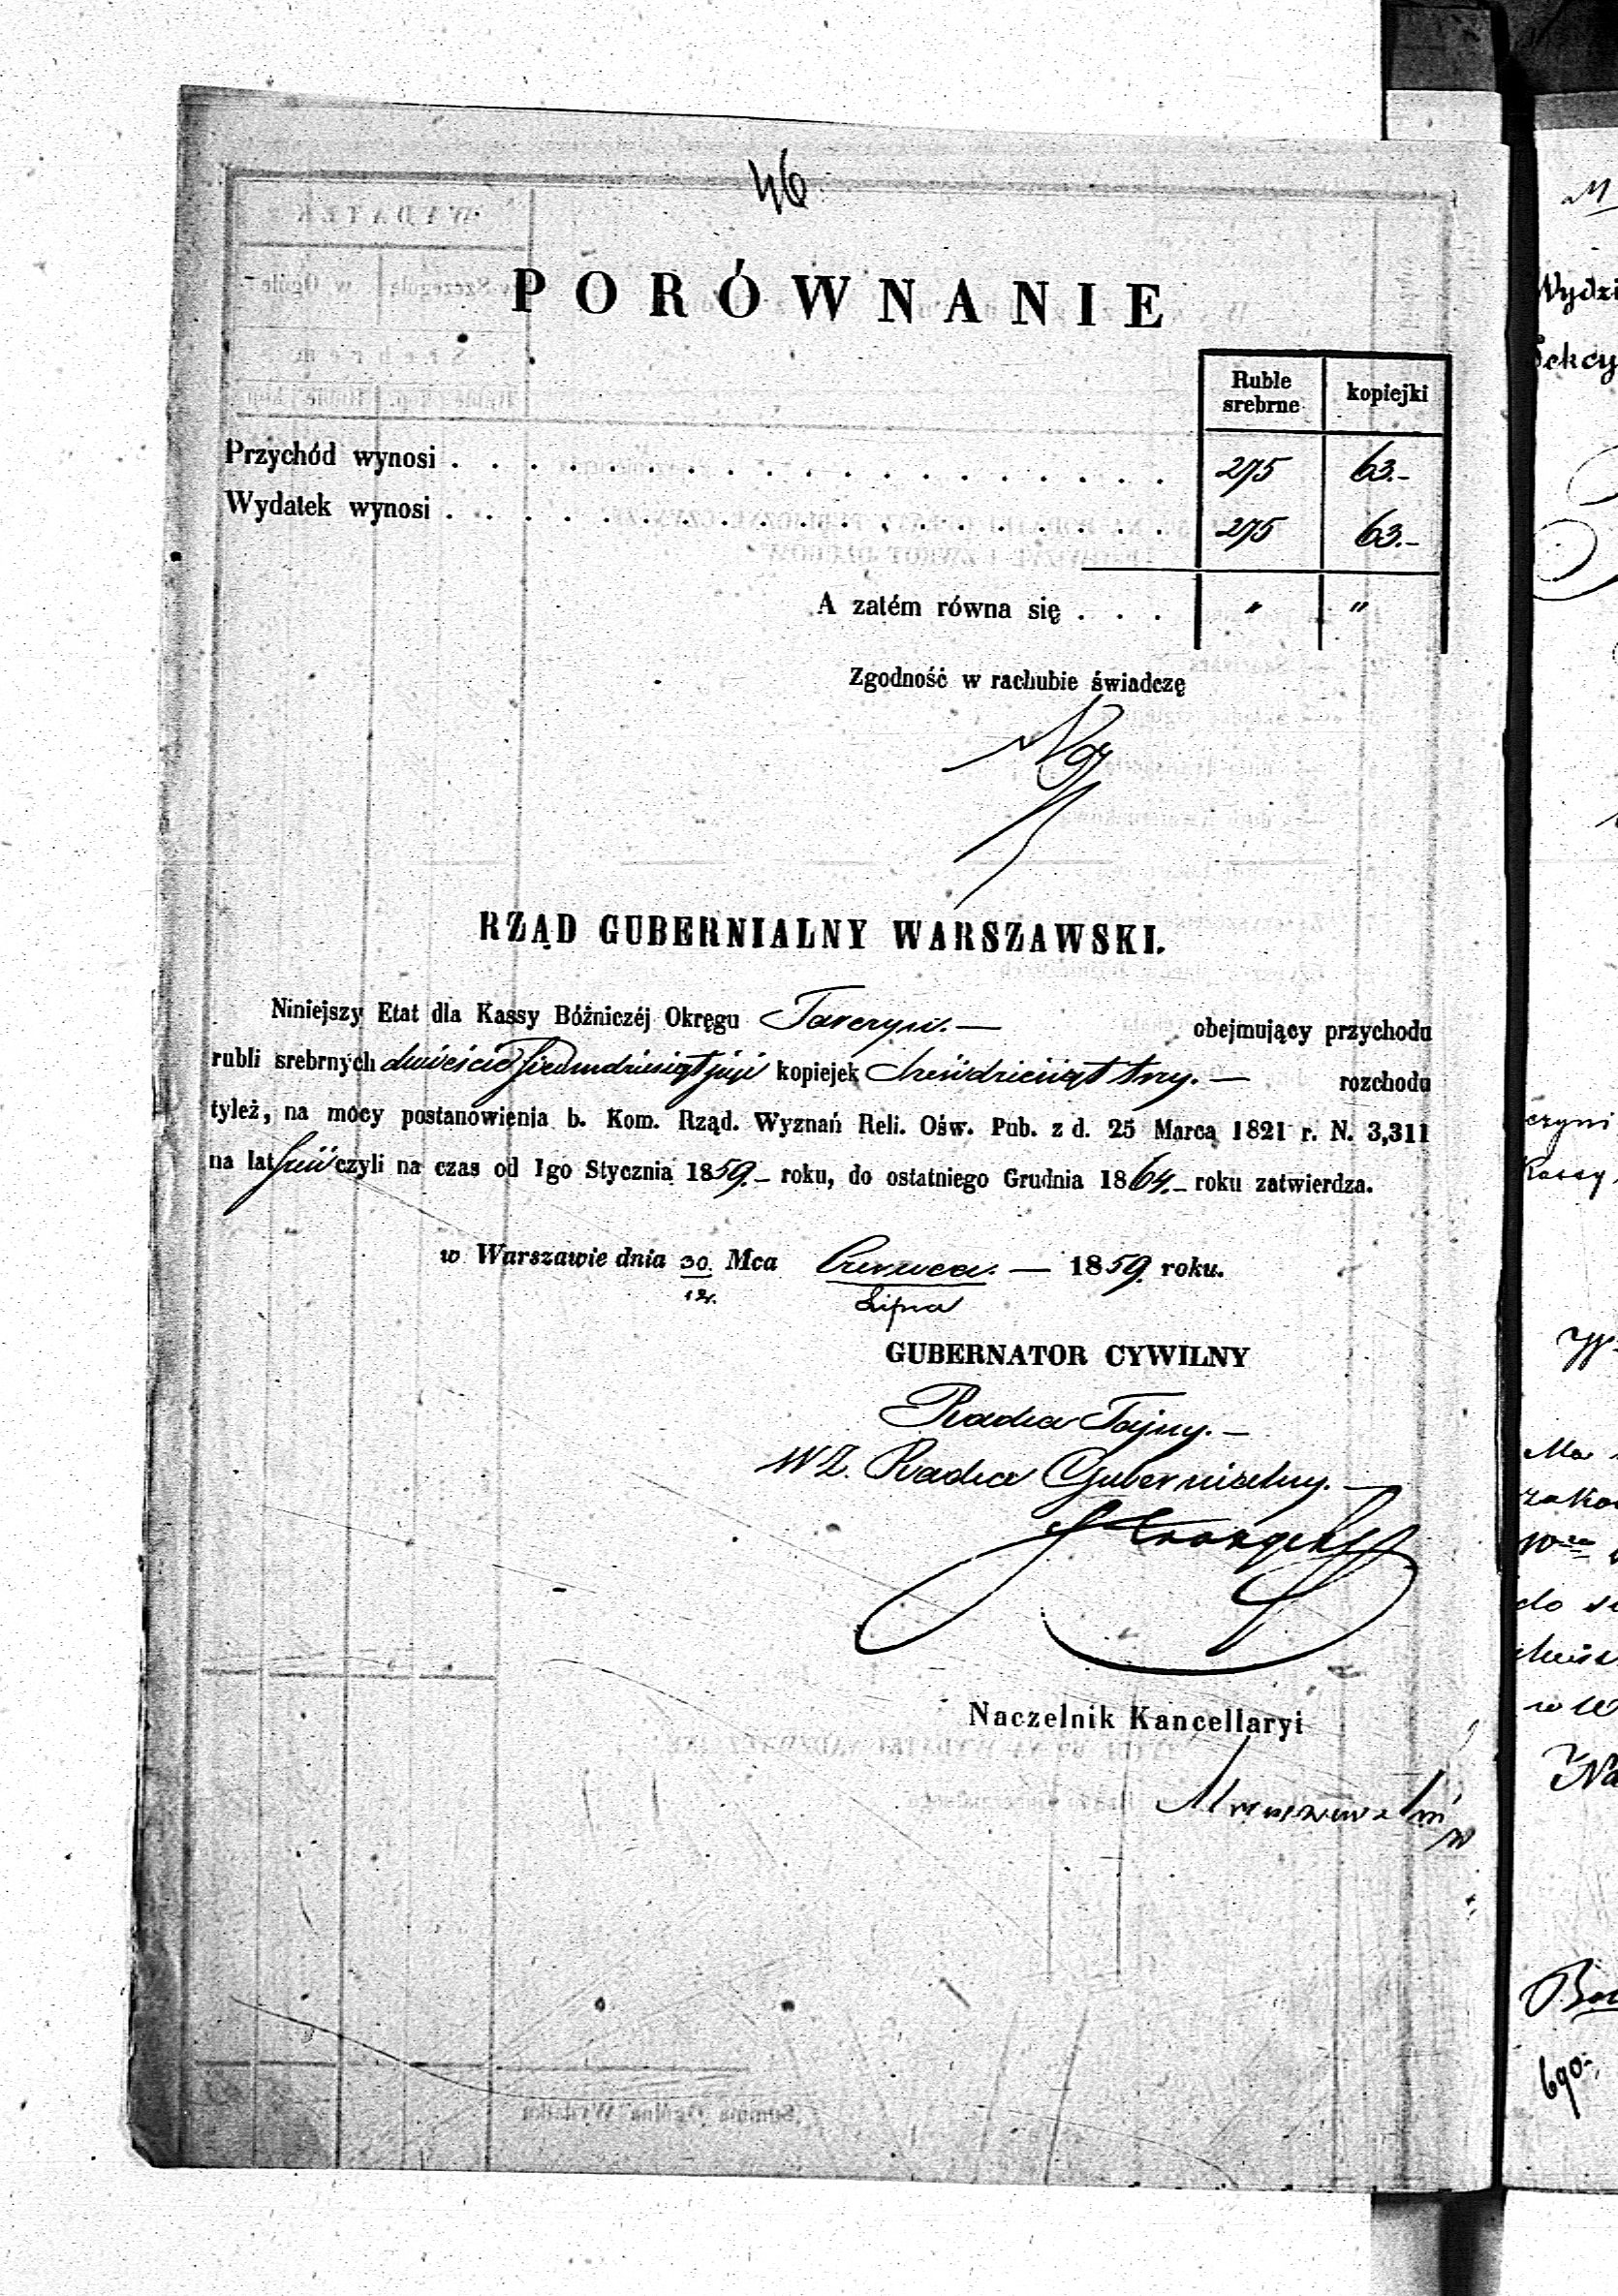 46
PORÓWNANIE
Ruble srebrne kopiejki
Przychód wynosi . . . . . . . . . . . . . . . . . . . 275 63.-
Wydatek wynosi . . . . . . . . . . . . . . . . . . . 275 63.-
A zatém równa się . . . " "
Zgodność w rachubie świadczę
RZĄD GUBERNIALNY WARSZAWSKI.
Niniejszy Etat dla Kassy Bóźniczéj Okręgu Tarczyn. — obejmujący przychodu
rubli srebrnych dwieście siedmdziesiąt pięć kopiejek sześćdziesiąt trzy. — rozchodu
tyleż, na mocy postanowienia b. Kom. Rząd. Wyznań Reli. Ośw. Pub. z d. 25 Marca 1821 r. N. 3,311
na lat sześć czyli na czas od 1go Stycznia 1859.- roku, do ostatniego Grudnia 1864.- roku zatwierdza.
w Warszawie dnia 30/12. Mca Czerwca. / Lipca — 1859. roku.
GUBERNATOR CYWILNY
Radca Tajny. —
WZ. Radca Gubernialny. —
Naczelnik Kancellaryi